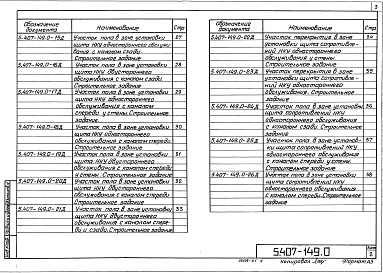 3
Обозначение документа
Наименование
Стр.
5.407-149.0-15Д
Участок пола в зоне установки
щита НКУ одностороннего обслужи-
вания с каналом сзади.
Строительное задание
27
5.407-149.0-16Д
Участок пола в зоне установки
щита НКУ двустороннего
обслуживания с каналом сзади.
Строительное задание
28
5.407-149.0-17Д
Участок пола в зоне установки
щита НКУ одностороннего
обслуживания с каналом
спереди у стены. Строительное
задание
29
5.407-149.0-18Д
Участок пола в зоне установки
щита НКУ одностороннего
обслуживания с каналом сзади.
Строительное задание
30
5.407-149.0-19Д
Участок пола в зоне установки
щита НКУ двустороннего
обслуживания с каналом спереди
у стены. Строительное задание
31
5.407-149.0-20Д
Участок пола в зоне установки
щита НКУ двустороннего
обслуживания с каналом спереди
Строительное задание
32
5.407-149.0-21Д
Участок пола в зоне установки
щита НКУ двустороннего
обслуживания с каналом спере-
ди и сзади. Строительное задание
33
Обозначение документа
Наименование
Стр
5.407-149.0-22Д
Участок перекрытия в зоне
установки щита сопротивле-
ний НКУ одностороннего
обслуживания у стены.
Строительное задание
34
5.407-149.0-23Д
Участок перекрытия в зоне
установки щита сопротивле-
ний НКУ одностороннего
обслуживания. Строительное
задание
35
5.407-149.0-24Д
Участок пола в зоне установки
щита сопротивлений НКУ
одностороннего обслуживания
с каналом сзади. Строительное
задание
36
5.407-149.0-25Д
Участок пола в зоне установ-
ки щита сопротивлений НКУ
одностороннего обслуживания
с каналом спереди у стены.
Строительное задание
37
5.407-149.0-26Д
Участок пола в зоне установки
щита сопротивлений НКУ
одностороннего обслуживания
с каналом спереди. Строительное
задание
38
5.407-149.0
Лист
2
Копировал
Формат А3